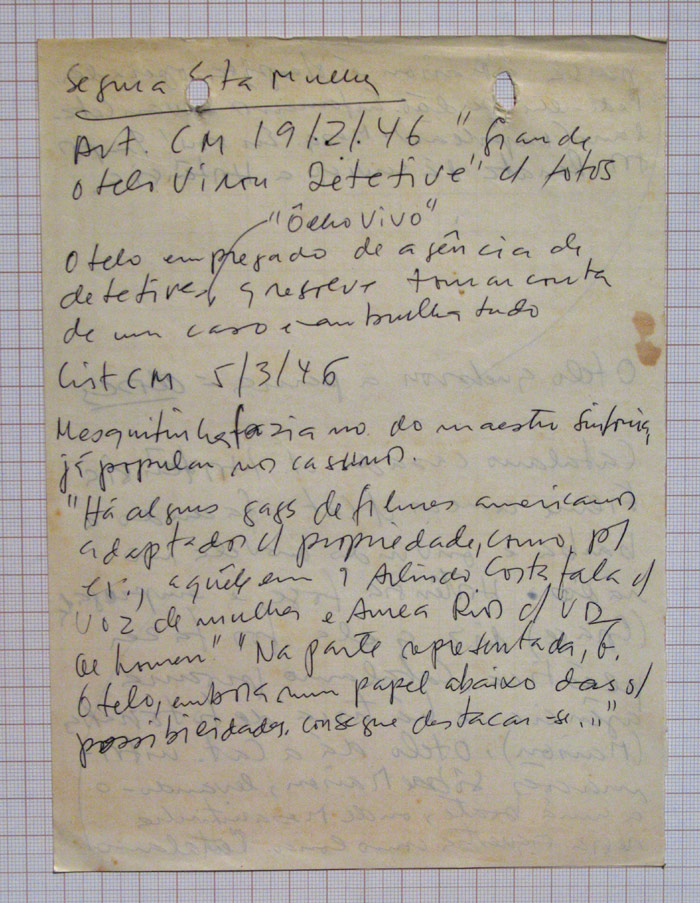 Segura Esta Mulher
Art. CM 19/2/46 "Grande
Otelo Virou Detetive" c/ fotos
"Ôlho Vivo"
Otelo empregado de agência de
detetives q resolve tomar conta
de um caso e embrulha tudo
Crit CM 5/3/46
Mesquitinha fazia no. do maestro Sinfonia,
já popular nos cassinos.
"Há alguns gags de filmes americanos
adaptados c/ propriedade, como, p/
ex., aquêle em q Arlindo Costa fala c/
voz de mulher e Aurea Rios c/ voz
de homem" "Na parte representada, G.
Otelo, embora num papel abaixo das s/
possibilidades, consegue destacar-se..."